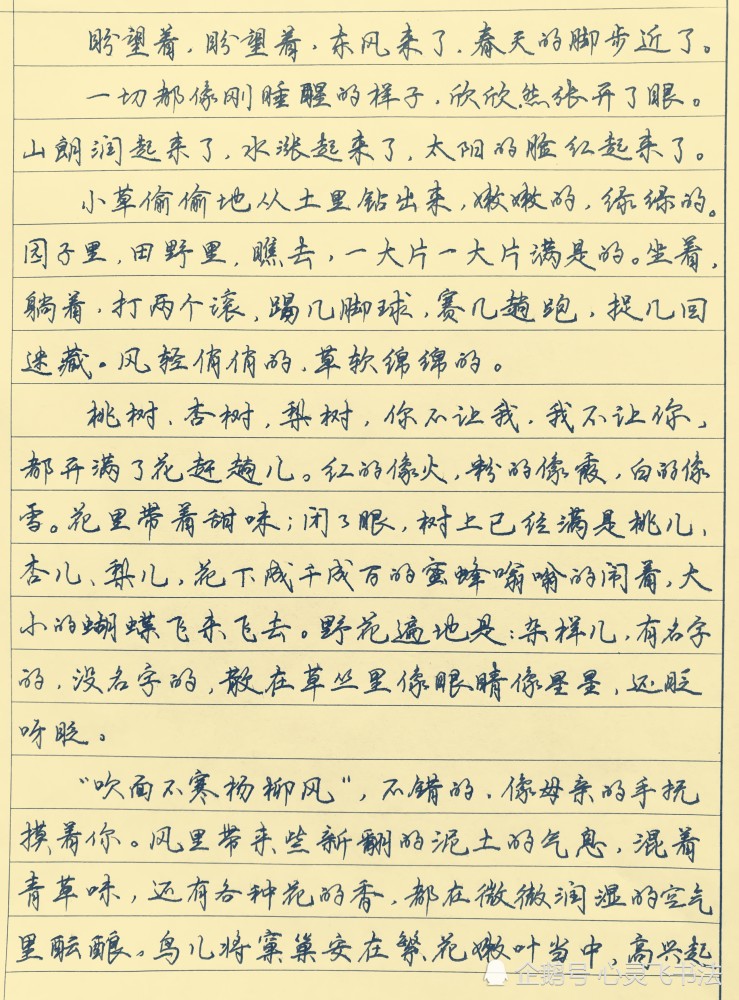 盼望着，盼望着，东风来了，春天的脚步近了。
一切都像刚睡醒的样子，欣欣然张开了眼。
山朗润起来了，水涨起来了，太阳的脸红起来了。
小草偷偷地从土里钻出来，嫩嫩的，绿绿的。
园子里，田野里，瞧去，一大片一大片满是的。坐着，
躺着，打两个滚，踢几脚球，赛几趟跑，捉几回
迷藏。风轻俏俏的，草软绵绵的。
桃树、杏树，梨树，你不让我，我不让你，
都开满了花赶趟儿。红的像火，粉的像霞，白的像
雪。花里带着甜味；闭了眼，树上已经满是桃儿、
杏儿、梨儿，花下成千成百的蜜蜂嗡嗡的闹着，大
小的蝴蝶飞来飞去。野花遍地是：杂样儿，有名字
的，没名字的，散在草丛里像眼睛像星星，还眨
呀眨。
“吹面不寒杨柳风”，不错的，像母亲的手抚
摸着你。风里带来些新翻的泥土的气息，混着
青草味，还有各种花的香，都在微微润湿的空气
里酝酿。鸟儿将窠巢安在繁花嫩叶当中，高兴起
企鹅号 心灵飞书法